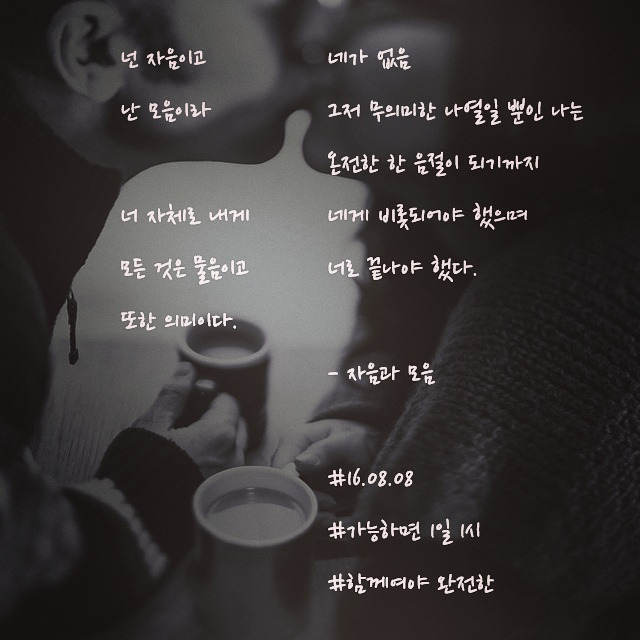 넌 자음이고
난 모음이라
너 자체로 내게
모든 것은 물음이고
또한 의미이다.
네가 없음
그저 무의미한 나열일 뿐인 나는
온전한 한 음절이 되기까지
네게 비롯되어야 했으며
너로 끝나야 했다.
- 자음과 모음
#16.08.08
#가능하면 1일 1시
#함께여야 완전한